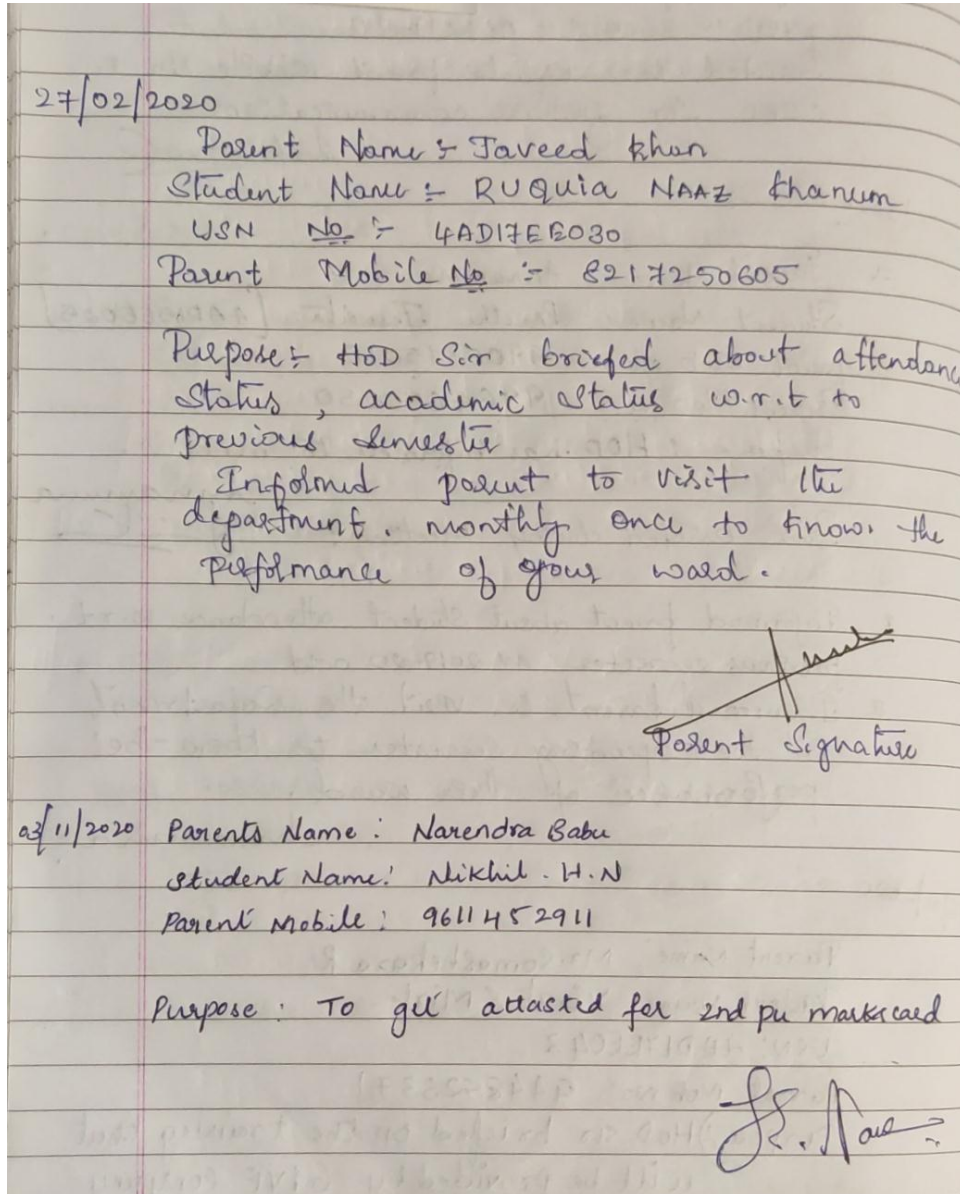 27/02/2020
Parent Name :- Javeed khan
Student Name :- RUQUIA NAAZ khanum
USN No :- 4AD17EE030
Parent Mobile No :- 8217250605
Purpose :- HoD Sir briefed about attendanc
Status, academic status w.r.t to
previous semester
Informed parent to visit the
department. monthly once to know. the
performance of your ward.
Parent Signature
03/11/2020 Parents Name : Narendra Babu
Student Name: Nikhil . H.N
Parent Mobile : 9611452911
Purpose : To get attasted for 2nd pu markscard